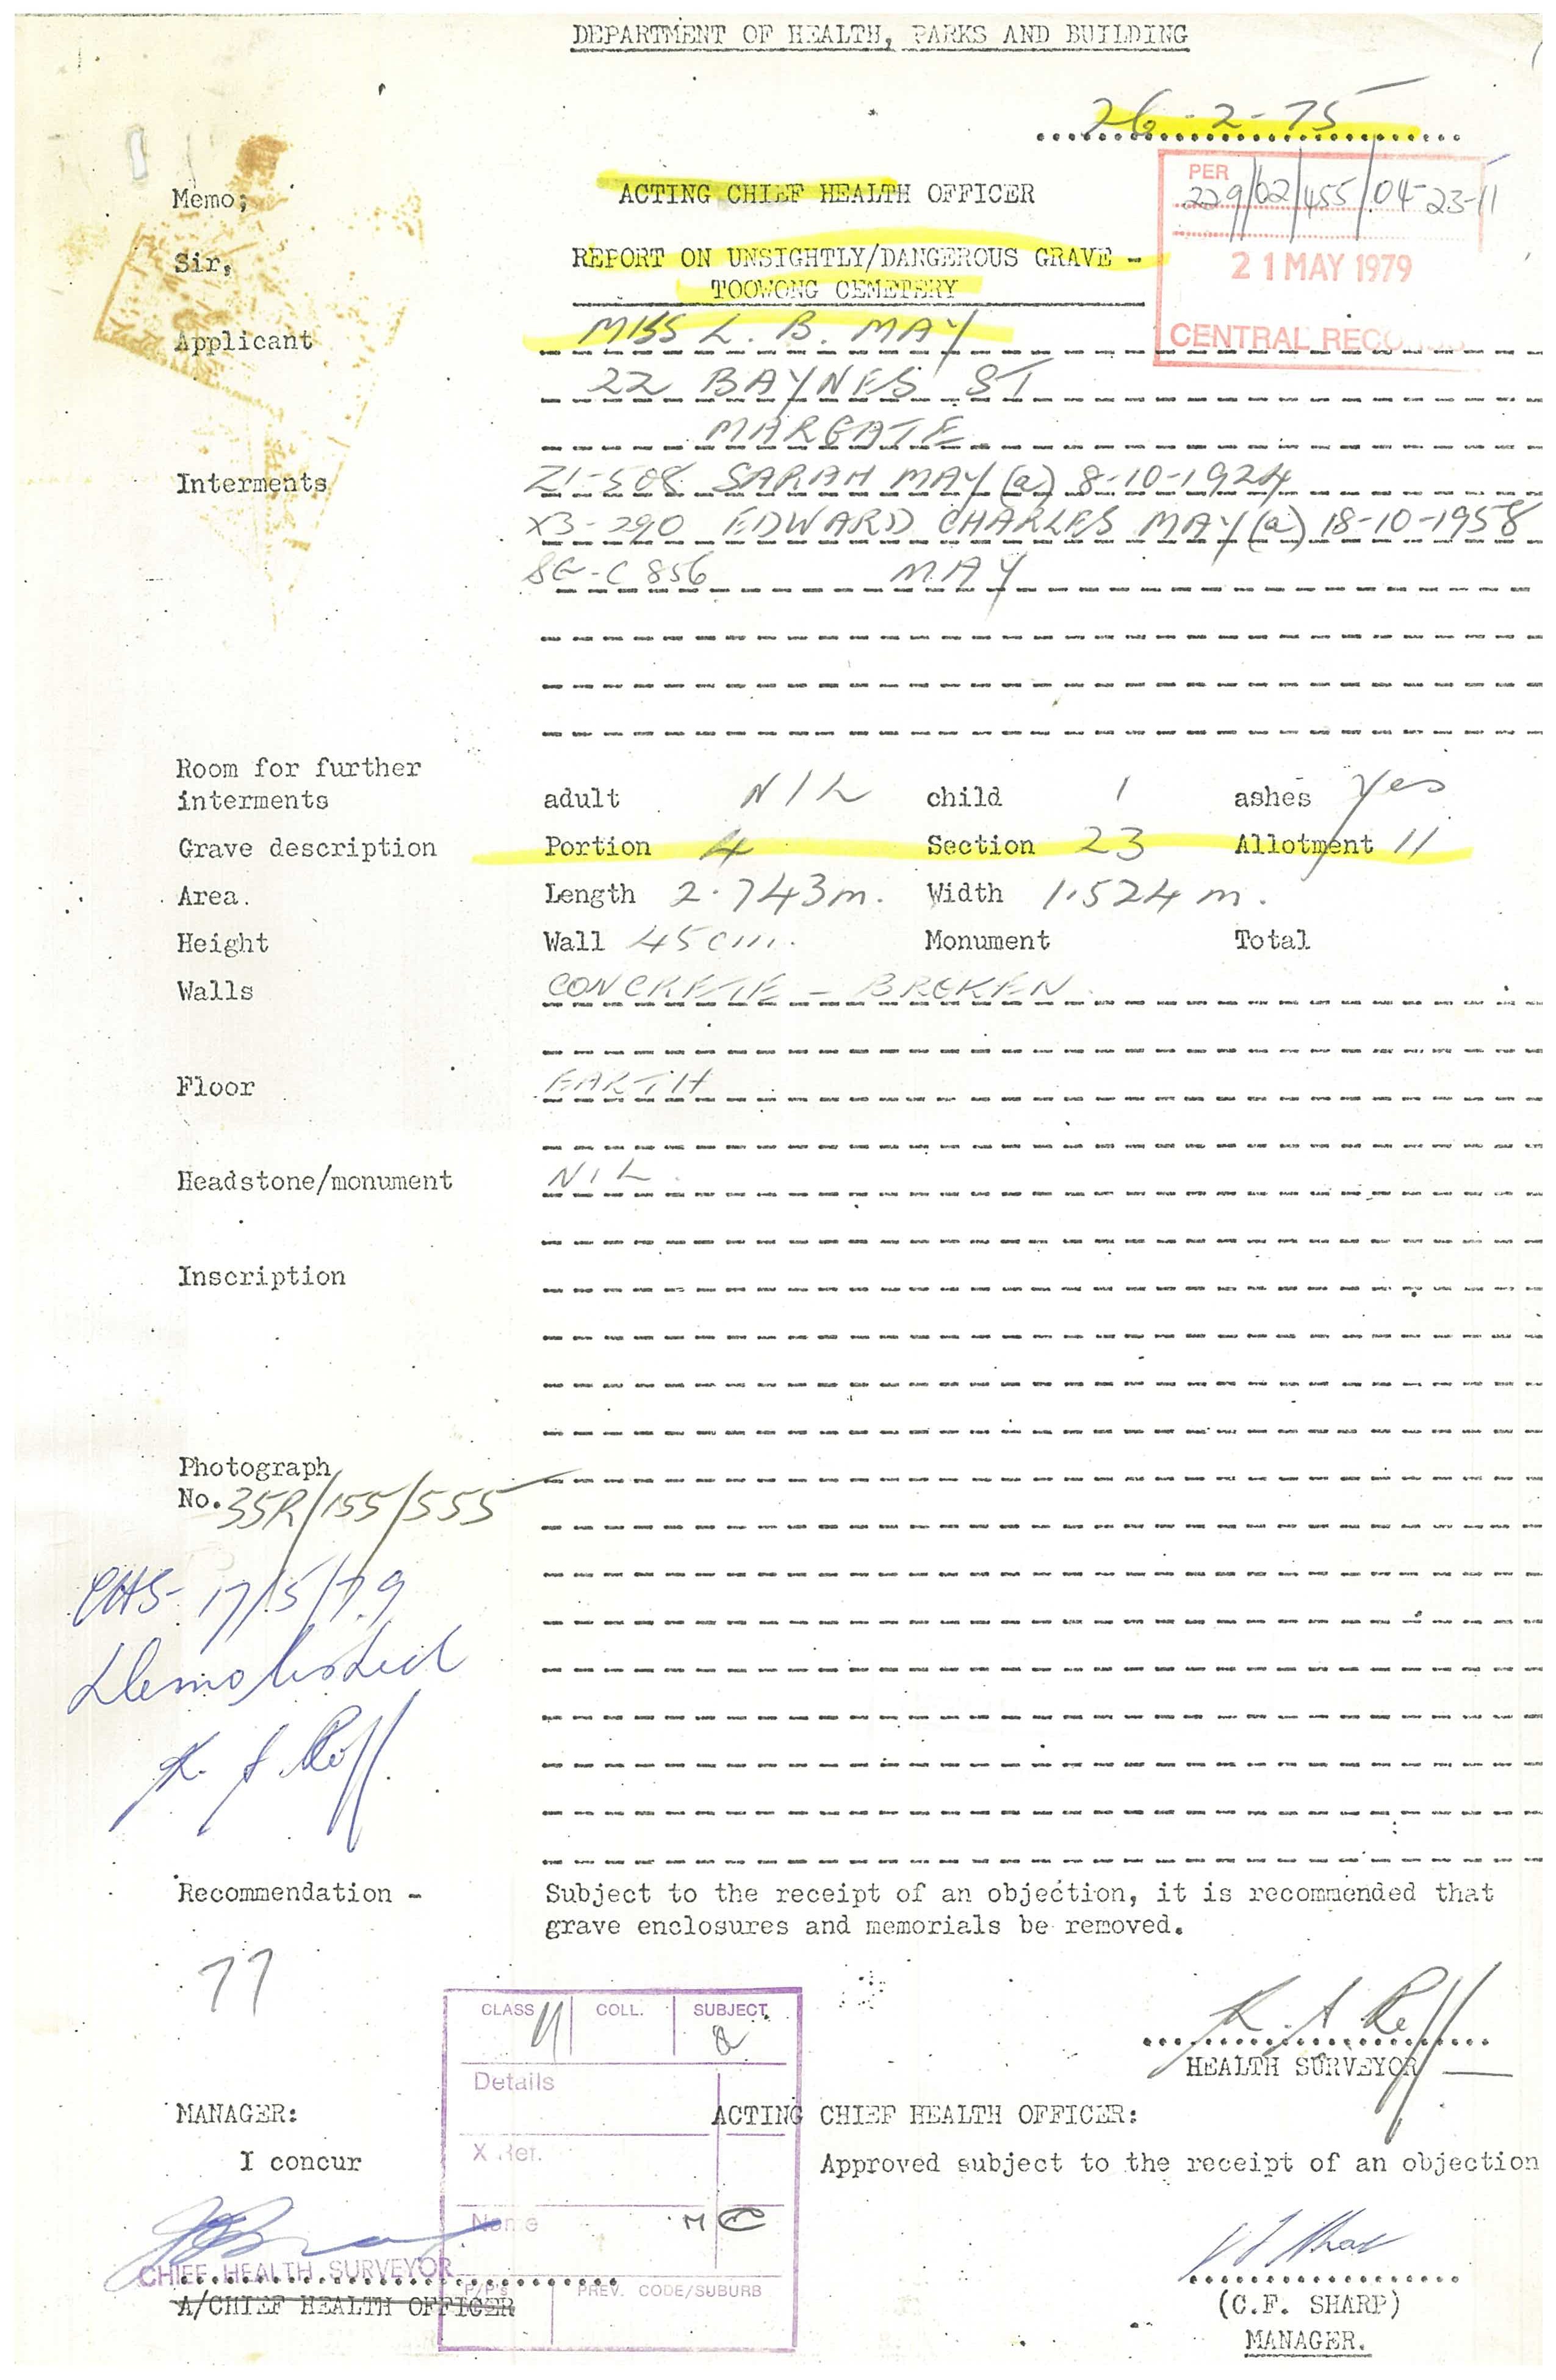 DEPARTMENT OF HEALTH, PARKS AND BUILDING
26-2-75
Memo; ACTING CHIEF HEALTH OFFICER
PER
229/02/455/04-23-11
21 MAY 1979
CENTRAL RECORDS
Sir, REPORT ON UNSIGHTLY/DANGEROUS GRAVE -
TOOWONG CEMETERY
Applicant MISS L. B. MAY
22 BAYNES ST
MARGATE
Interments Z1-508 SARAH MAY (a) 8-10-1924
X3-290 EDWARD CHARLES MAY (a) 18-10-1958
SG-C 856 MAY
Room for further
interments adult NIL child 1 ashes Yes
Grave description Portion 4 Section 23 Allotment 11
Area. Length 2.743m. Width 1.524 m.
Height Wall 45 cm. Monument Total
Walls CONCRETE - BROKEN.
Floor EARTH
Headstone/monument NIL.
Inscription
Photograph
No. 35R/155/555
CHS- 17/5/79
Demolished
K. A Roff
Recommendation - Subject to the receipt of an objection, it is recommended that
grave enclosures and memorials be removed.
77
K. A Roff
HEALTH SURVEYOR
CLASS COLL. SUBJECT
Details
X Ref.
Name M C
P/P's PREV. CODE/SUBURB
MANAGER: ACTING CHIEF HEALTH OFFICER:
I concur Approved subject to the receipt of an objection
CHIEF HEALTH SURVEYOR
A/CHIEF HEALTH OFFICER
(C.F. SHARP)
MANAGER.